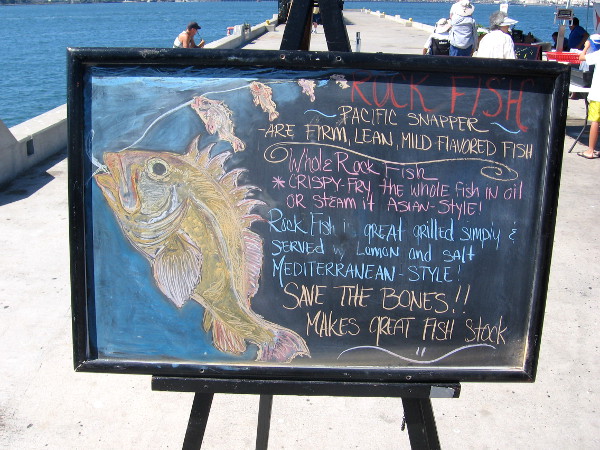 ROCK FISH
~ PACIFIC SNAPPER ~
-ARE FIRM, LEAN, MILD FLAVORED FISH
Whole Rock Fish
* CRISPY-FRY the whole fish in oil
OR STEAM it ASIAN-STYLE!
Rock Fish is great grilled simply &
served w/ Lemon and salt
MEDITERRANEAN-STYLE!
SAVE THE BONES!!
MAKES GREAT FISH STOCK